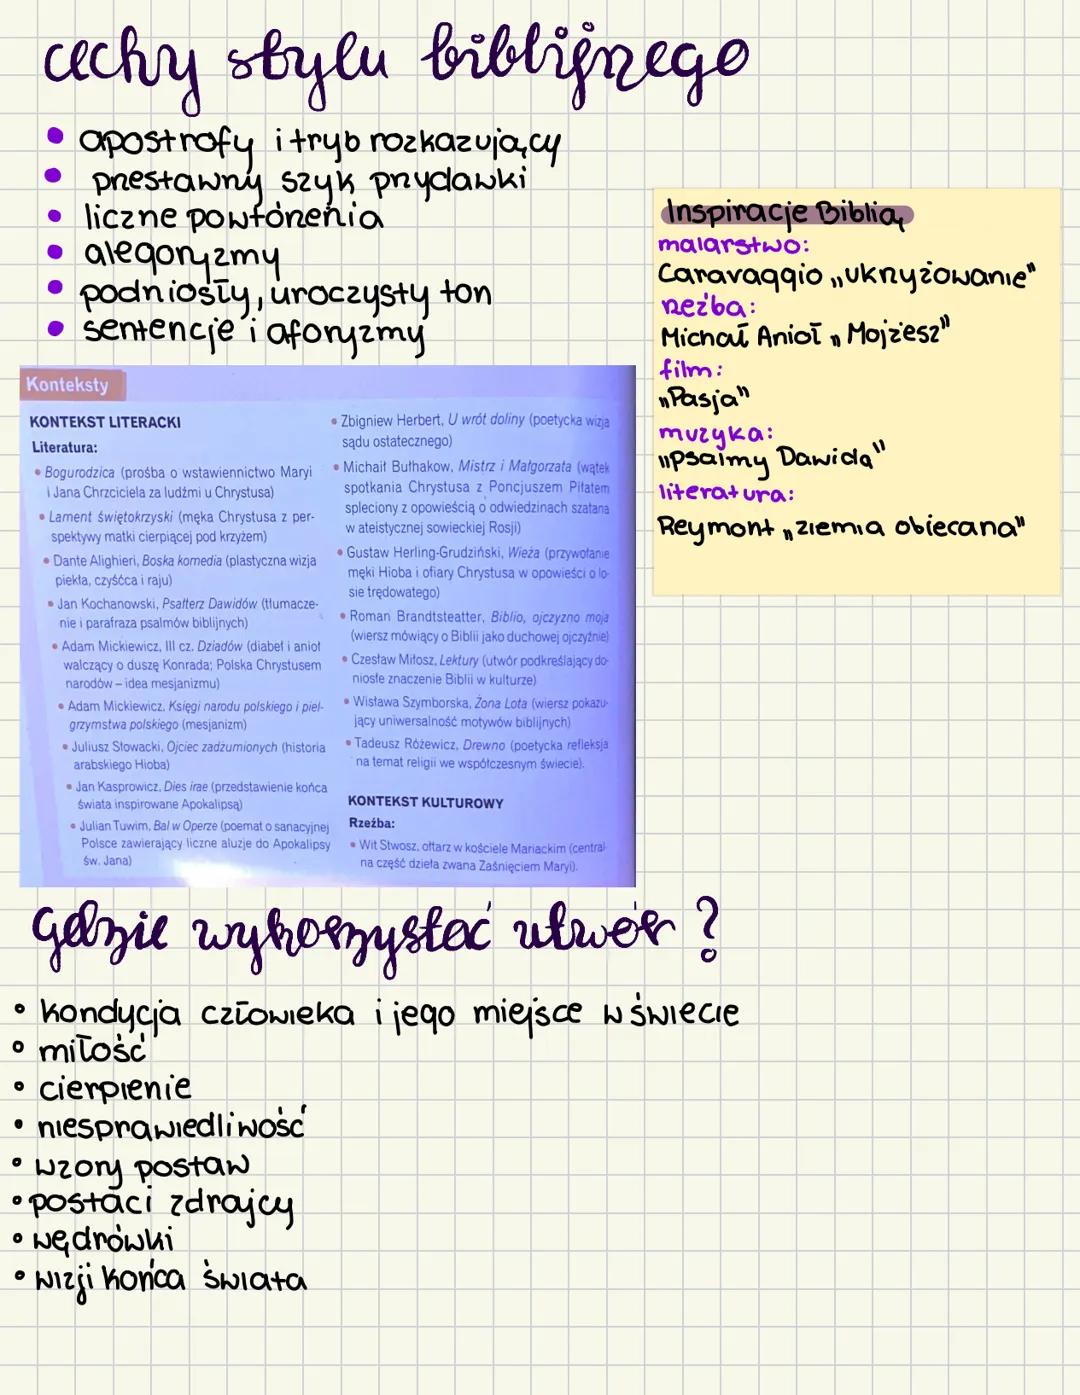 cechy stylu biblijnego
• apostrofy i tryb rozkazujący
• przestawny szyk przydawki
• liczne powtórzenia
• alegoryzmy
• podniosły, uroczysty ton
• sentencje i aforyzmy
Inspiracje Biblią
malarstwo:
Caravaggio „ukrzyżowanie"
rzeźba:
Michał Anioł „Mojżesz"
film:
„Pasja"
muzyka:
"psalmy Dawida"
literatura:
Reymont „ziemia obiecana"
Konteksty
KONTEKST LITERACKI
Literatura:
• Bogurodzica (prośba o wstawiennictwo Maryi
i Jana Chrzciciela za ludźmi u Chrystusa)
• Lament świętokrzyski (męka Chrystusa z per-
spektywy matki cierpiącej pod krzyżem)
• Dante Alighieri, Boska komedia (plastyczna wizja
piekła, czyśćca i raju)
• Jan Kochanowski, Psałterz Dawidów (tłumacze-
nie i parafraza psalmów biblijnych)
• Adam Mickiewicz, III cz. Dziadów (diabeł i anioł
walczący o duszę Konrada; Polska Chrystusem
narodów – idea mesjanizmu)
• Adam Mickiewicz, Księgi narodu polskiego i piel-
grzymstwa polskiego (mesjanizm)
• Juliusz Słowacki, Ojciec zadżumionych (historia
arabskiego Hioba)
• Jan Kasprowicz, Dies irae (przedstawienie końca
świata inspirowane Apokalipsą)
• Julian Tuwim, Bal w Operze (poemat o sanacyjnej
Polsce zawierający liczne aluzje do Apokalipsy
św. Jana)
• Zbigniew Herbert, U wrót doliny (poetycka wizja
sądu ostatecznego)
• Michaił Bułhakow, Mistrz i Małgorzata (wątek
spotkania Chrystusa z Poncjuszem Piłatem
spleciony z opowieścią o odwiedzinach szatana
w ateistycznej sowieckiej Rosji)
• Gustaw Herling-Grudziński, Wieża (przywołanie
męki Hioba i ofiary Chrystusa w opowieści o lo-
sie trędowatego)
• Roman Brandtsteatter, Biblio, ojczyzno moja
(wiersz mówiący o Biblii jako duchowej ojczyźnie)
• Czesław Miłosz, Lektury (utwór podkreślający do-
niosłe znaczenie Biblii w kulturze)
• Wisława Szymborska, Żona Lota (wiersz pokazu-
jący uniwersalność motywów biblijnych)
• Tadeusz Różewicz, Drewno (poetycka refleksja
na temat religii we współczesnym świecie).
KONTEKST KULTUROWY
Rzeźba:
• Wit Stwosz, ołtarz w kościele Mariackim (central-
na część dzieła zwana Zaśnięciem Maryi).
Gdzie wykorzystać utwór?
• kondycja człowieka i jego miejsce w świecie
• miłość
• cierpienie
• niesprawiedliwość
• wzory postaw
• postaci zdrajcy
• wędrówki
• wizji końca świata